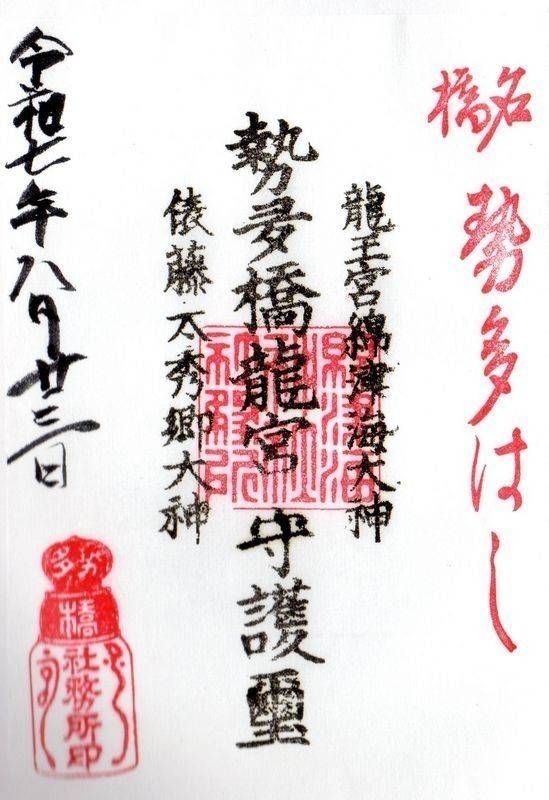 名橋
勢多はし
龍王宮綿津海大神
勢多橋龍宮守護璽
俵藤太秀郷大神
令和七年八月廿三日
勢多
橋
社務所印